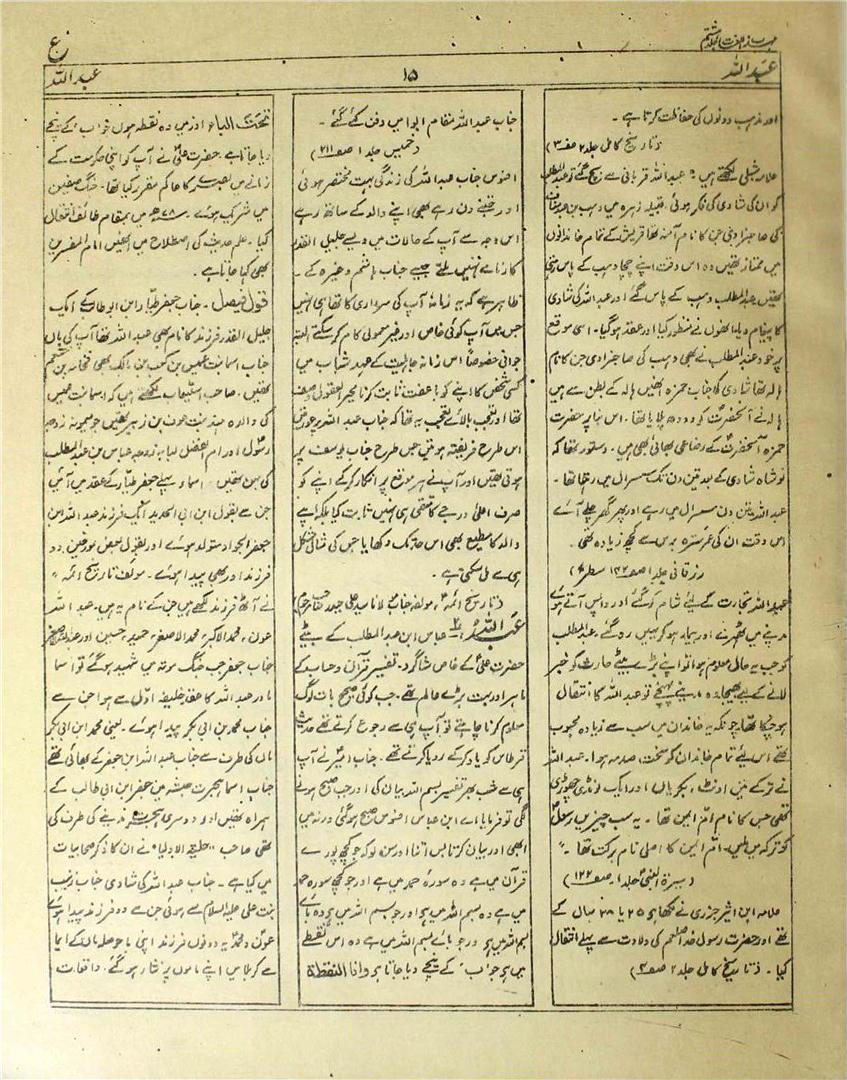 ع
عبد اللہ
۱۵
عبد اللہ
اور مذہب دونوں کی حفاظت کرتا ہے۔
(تاریخ کامل جلد ۲ صفہ ۳)
علامہ شبلی لکھتے ہیں: عبد اللہ قربانی سے بچ گئے تو عبد المطلب
کو ان کی شادی کی فکر ہوئی، قبیلہ زہرہ میں وہب بن عبد مناف
کی صاحبزادی جن کا نام آمنہ تھا قریش کے تمام خاندانوں
میں ممتاز تھیں وہ اس وقت اپنے چچا وہیب کے پاس رہتی
تھیں عبد المطلب وہیب کے پاس گئے اور عبد اللہ کی شادی
کا پیغام دیا، انھوں نے منظور کیا اور عقد ہو گیا۔ اسی موقع
پر خود عبد المطلب نے بھی وہیب کی صاحبزادی جن کا نام
ہالہ تھا شادی کی جناب حمزہ انھیں ہالہ کے بطن سے ہیں
ہالہ نے آنحضرتؐ کو دودھ پلایا تھا۔ اس بنا پر حضرت
حمزہ آنحضرتؐ کے رضاعی بھائی بھی ہیں۔ دستور تھا کہ
نوشاہ شادی کے بعد تین دن تک سسرال میں رہتا تھا۔
عبد اللہ تین دن سسرال میں رہے اور پھر گھر چلے آئے
اس وقت ان کی عمر سترہ برس سے کچھ زیادہ تھی۔
زرقانی جلد ۱ صفہ ۱۲۲ سطر ۴)
عبد اللہ تجارت کے لئے شام کو گئے اور واپس آتے ہوئے
مدینے میں ٹھہرے اور بیمار ہو کر یہیں رہ گئے، عبد المطلب
کو جب یہ حال معلوم ہوا تو اپنے بڑے بیٹے حارث کو خبر
لانے کے لیے بھیجا، وہ مدینے پہنچے تو عبد اللہ کا انتقال
ہو چکا تھا، چونکہ یہ خاندان میں سب سے زیادہ محبوب
تھے اس لئے تمام خاندان کو سخت صدمہ ہوا۔ عبد اللہ
نے ترکے میں اونٹ، بکریاں اور ایک لونڈی چھوڑی
تھی جس کا نام ام ایمن تھا۔ یہ سب چیزیں رسولؐ
کو ترکہ میں ملیں۔ ام ایمن کا اصلی نام برکت تھا۔"
(سیرۃ النبیؐ جلد ۱ صفہ ۱۲۲)
علامہ ابن اثیر جزری نے لکھا ہے ۲۵ یا ۲۸ سال کے
تھے اور حضرت رسول خدا صلعم کی ولادت سے پہلے انتقال
کیا۔ (تاریخ کامل جلد ۲ صفہ ۴)
جناب عبد اللہ مقام ابوا میں دفن کئے گئے۔
(خمیس جلد ۱ صفہ ۲۱۱)
افسوس جناب عبد اللہ کی زندگی بہت مختصر ہوئی
اور جتنے دن رہے بھی اپنے والد کے ساتھ رہے
اس وجہ سے آپ کے حالات میں ویسے جلیل القدر
کارنامے نہیں ملتے جیسے جناب ہاشم وغیرہ کے۔
ظاہر ہے کہ یہ زمانہ آپ کی سرداری کا تھا ہی نہیں
جس میں آپ کوئی خاص اور غیر معمولی کام کر سکتے البتہ
جوانی خصوصاً اس زمانہ جاہلیت کے عہد شباب میں
کسی شخص کا اپنے کو باعفت ثابت کرنا محیر العقول وصف
تھا اور تعجب بالائے تعجب یہ تھا کہ جناب عبد اللہ پر عورتیں
اس طرح فریفتہ ہوتیں جس طرح جناب یوسف پر
ہوتی تھیں اور آپ نے ہر موقع پر انکار کر کے اپنے کو
صرف اعلیٰ درجے کا متقی ہی نہیں ثابت کیا بلکہ اپنے
والد کا مطیع بھی اس حد تک دکھایا جس کی مثال مشکل
ہی سے مل سکتی ہے۔
(تاریخ ائمہ، مولفہ جناب مولانا سید علی حیدر صاحب مرحوم)
عبد اللہ ابن عباس ابن عبد المطلب کے بیٹے
حضرت علیؑ کے خاص شاگرد۔ تفسیر قرآن و حساب کے
ماہر اور بہت بڑے عالم تھے۔ جب کوئی صحیح بات لوگ
معلوم کرنا چاہتے تو آپ ہی سے رجوع کرتے تھے حدیث
قرطاس کو یاد کر کے رویا کرتے تھے۔ جناب امیرؑ نے آپ
ہی سے شب بھر تفسیر بسم اللہ بیان کی اور جب صبح ہونے
لگی تو فرمایا اے ابن عباس افسوس صبح ہو گئی ورنہ میں
ابھی اور بیان کرتا بس اتنا اور سن لو کہ جو کچھ پورے
قرآن میں ہے وہ سورۂ حمد میں ہے اور جو کچھ سورہ حمد
میں ہے وہ بسم اللہ میں ہے اور جو بسم اللہ میں ہے وہ بائے
بسم اللہ میں ہے اور جو بائے بسم اللہ میں ہے وہ اس نقطے
میں ہے جو "ب" کے نیچے دیا جاتا ہے وانا النقطۃ
تحت الباء اور میں وہ نقطہ ہوں جو اب کے نیچے
دیا جاتا ہے، حضرت علیؑ نے آپ کو اپنی حکومت کے
زمانے میں بصرے کا حاکم مقرر کیا تھا۔ جنگ صفین
میں شریک ہوئے۔ ۶۸ھ میں بمقام طائف انتقال
کیا۔ علم حدیث کی اصطلاح میں انھیں امام المفسرین
بھی کہا جاتا ہے۔
قول فیصل۔ جناب جعفر طیار ابن ابو طالب کے ایک
جلیل القدر فرزند کا نام بھی عبد اللہ تھا آپ کی ماں
جناب اسما بنت عمیس بن کعب بن مالک بھی قحافہ بن خثعم
تھیں۔ صاحب استیعاب لکھتے ہیں کہ اسما بنت عمیس
کی والدہ ہند بنت عون بن زہیر تھیں جو میمونہ زوجہ
رسولؐ اور ام الفضل لبابہ زوجہ عباس بن عبد المطلب
کی بہن تھیں۔ اسماء پہلے جعفر طیارؑ کے عقد میں آئیں
جن سے بقول ابن ابی الحدید ایک فرزند عبد اللہ ابن
جعفر الجواد متولد ہوئے اور بقول بعض مورخین دو
فرزند اور بھی پیدا ہوئے۔ مولف تاریخ ائمہ
نے آٹھ فرزند لکھے ہیں جن کے نام یہ ہیں۔ عبد اللہ
عون، محمد الاکبر، محمد الاصغر، حمید، حسین اور عبد اللہ اصغر
جناب جعفر جب جنگ موتہ میں شہید ہو گئے تو اسما
مادر عبد اللہ کا عقد خلیفہ اول سے ہوا جن سے
جناب محمد بن ابی بکر پیدا ہوئے۔ یعنی محمد ابن ابی بکر
ماں کی طرف سے جناب عبد اللہ ابن جعفر کے بھائی تھے
جناب اسما ہجرت حبشہ میں جعفر ابن ابی طالب کے
ہمراہ تھیں اور دوسری ہجرت مدینے کی طرف کی
تھی صاحب "حلیۃ الاولیا" نے ان کا ذکر صحابیات
میں کیا ہے۔ جناب عبد اللہ کی شادی جناب زینب
بنت علی علیہ السلام سے ہوئی جن سے دو فرزند پیدا ہوئے
عون و محمد یہ دونوں فرزند اپنی با حوصلہ ماں کے ایما
سے کربلا میں اپنے ماموں پر نثار ہو گئے۔ واقعات